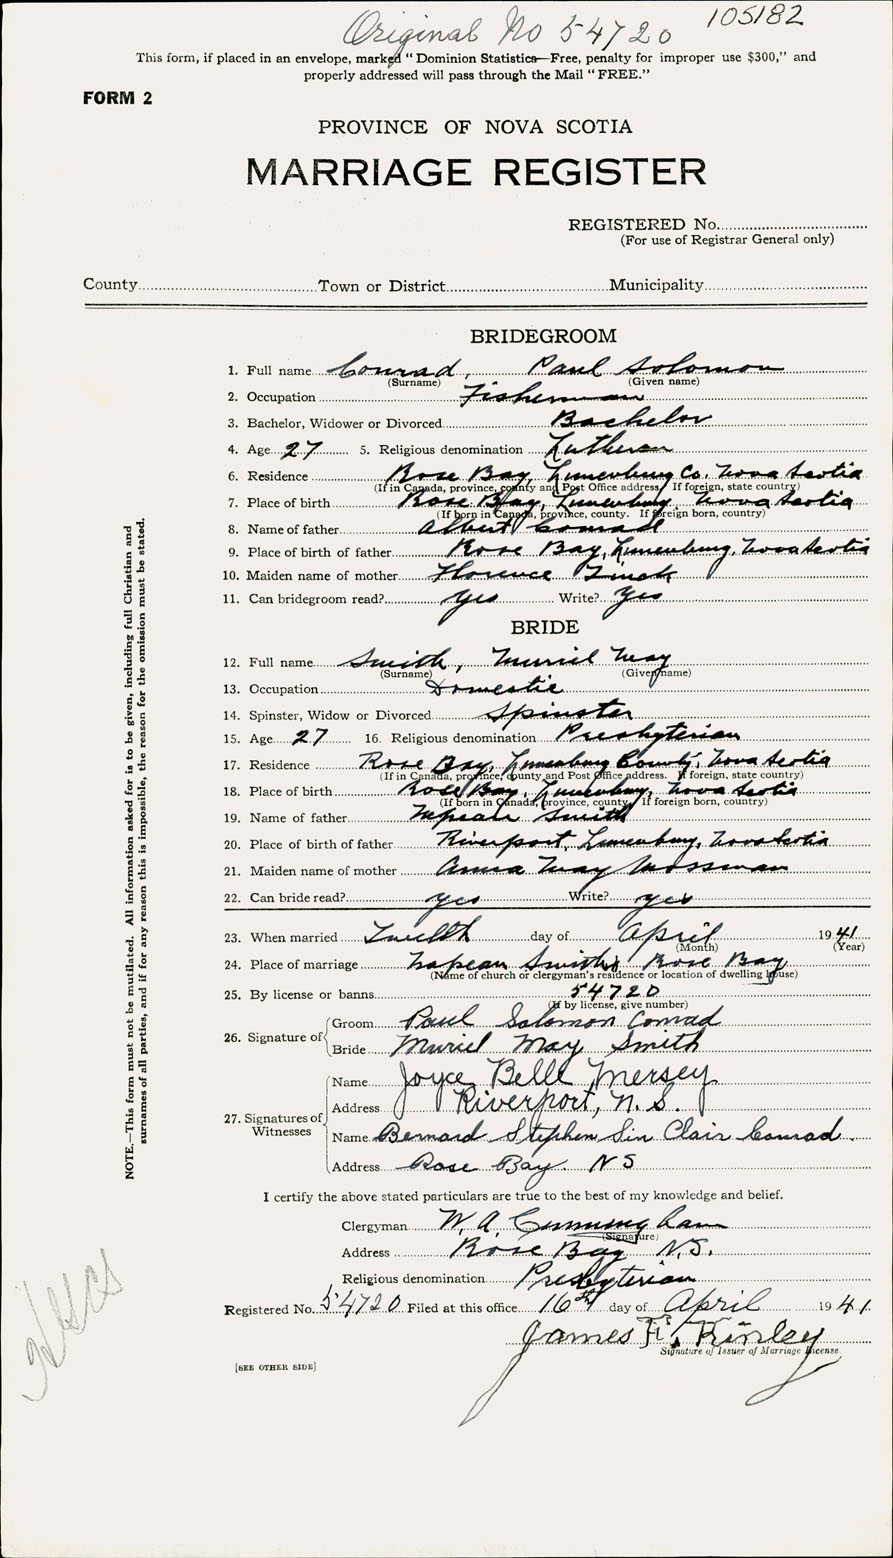 Original No 54720 105182
This form, if placed in an envelope, marked "Dominion Statistics—Free, penalty for improper use $300," and
properly addressed will pass through the Mail "FREE."
FORM 2
PROVINCE OF NOVA SCOTIA
MARRIAGE REGISTER
REGISTERED No.
(For use of Registrar General only)
County Town or District Municipality
BRIDEGROOM
1. Full name Conrad, Paul Solomon
(Surname) (Given name)
2. Occupation Fisherman
3. Bachelor, Widower or Divorced Bachelor
4. Age 27 5. Religious denomination Lutheran
6. Residence Rose Bay, Lunenburg Co. Nova Scotia
(If in Canada, province, county and Post Office address. If foreign, state country)
7. Place of birth Rose Bay, Lunenburg, Nova Scotia
(If born in Canada, province, county. If foreign born, country)
8. Name of father Albert Conrad
9. Place of birth of father Rose Bay, Lunenburg, Nova Scotia
10. Maiden name of mother Florence Zinck
11. Can bridegroom read? Yes Write? Yes
BRIDE
12. Full name Smith, Muriel May
(Surname) (Given name)
13. Occupation Domestic
14. Spinster, Widow or Divorced Spinster
15. Age 27 16. Religious denomination Presbyterian
17. Residence Rose Bay, Lunenburg County, Nova Scotia
(If in Canada, province, county and Post Office address. If foreign, state country)
18. Place of birth Rose Bay, Lunenburg, Nova Scotia
(If born in Canada, province, county. If foreign born, country)
19. Name of father Smith
20. Place of birth of father Riverport, Lunenburg, Nova Scotia
21. Maiden name of mother Anna May Mossman
22. Can bride read? yes Write? yes
23. When married Twelfth day of April 1941
(Month) (Year)
24. Place of marriage Napean Smith's Rose Bay
(Name of church or clergyman's residence or location of dwelling house)
25. By license or banns 54720
(If by license, give number)
26. Signature of Groom Paul Solomon Conrad
Bride Muriel May Smith
27. Signatures of Witnesses
Name Joyce Belle Mersey
Address Riverport, N.S.
Name Bernard Stephen Sin Clair Conrad.
Address Rose Bay. NS
I certify the above stated particulars are true to the best of my knowledge and belief.
Clergyman W. A. Cunningham
(Signature)
Address Rose Bay N.S.
Religious denomination Presbyterian
Registered No. 54720 Filed at this office 16th day of April 1941.
James F. Kinley
Signature of Issuer of Marriage License.
[SEE OTHER SIDE]
NOTE.—This form must not be mutilated. All information asked for is to be given, including full Christian and
surnames of all parties, and if for any reason this is impossible, the reason for the omission must be stated.